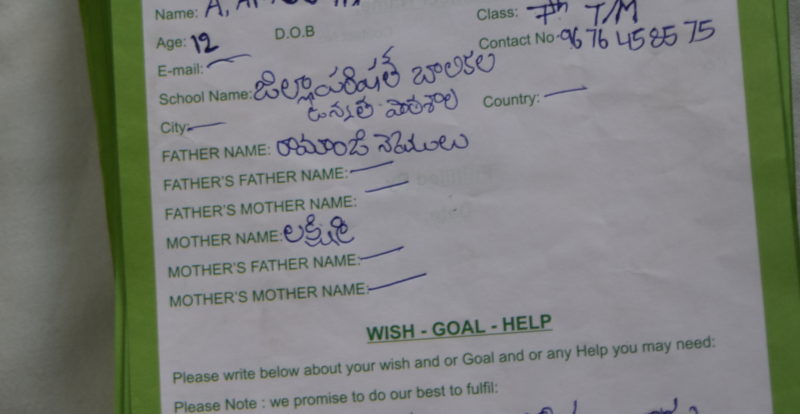 Name: A,
Class: 7th T/M
Age: 12 D.O.B
Contact No-9676458575
E-mail:
School Name: జిల్లాపరిషత్ బాలికల
ఉన్నత పాఠశాల
City: Country:
FATHER NAME: రామాంజినేయులు
FATHER'S FATHER NAME:
FATHER'S MOTHER NAME:
MOTHER NAME: లక్ష్మి
MOTHER'S FATHER NAME:
MOTHER'S MOTHER NAME:
WISH - GOAL - HELP
Please write below about your wish and or Goal and or any Help you may need:
Please Note : we promise to do our best to fulfil: